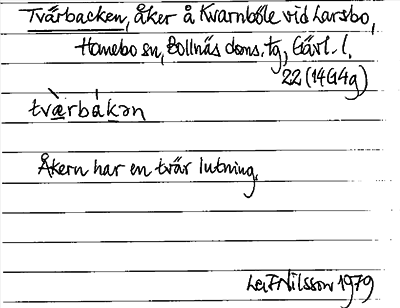 Tvärbacken, åker å Kvarnböle vid Larsbo,
Hanebo sn, Bollnäs doms. tg, Gävl. l.
22 (14G4g)
tvæ̀rbákən
Åkern har en tvär lutning.
Leif Nilsson 1979